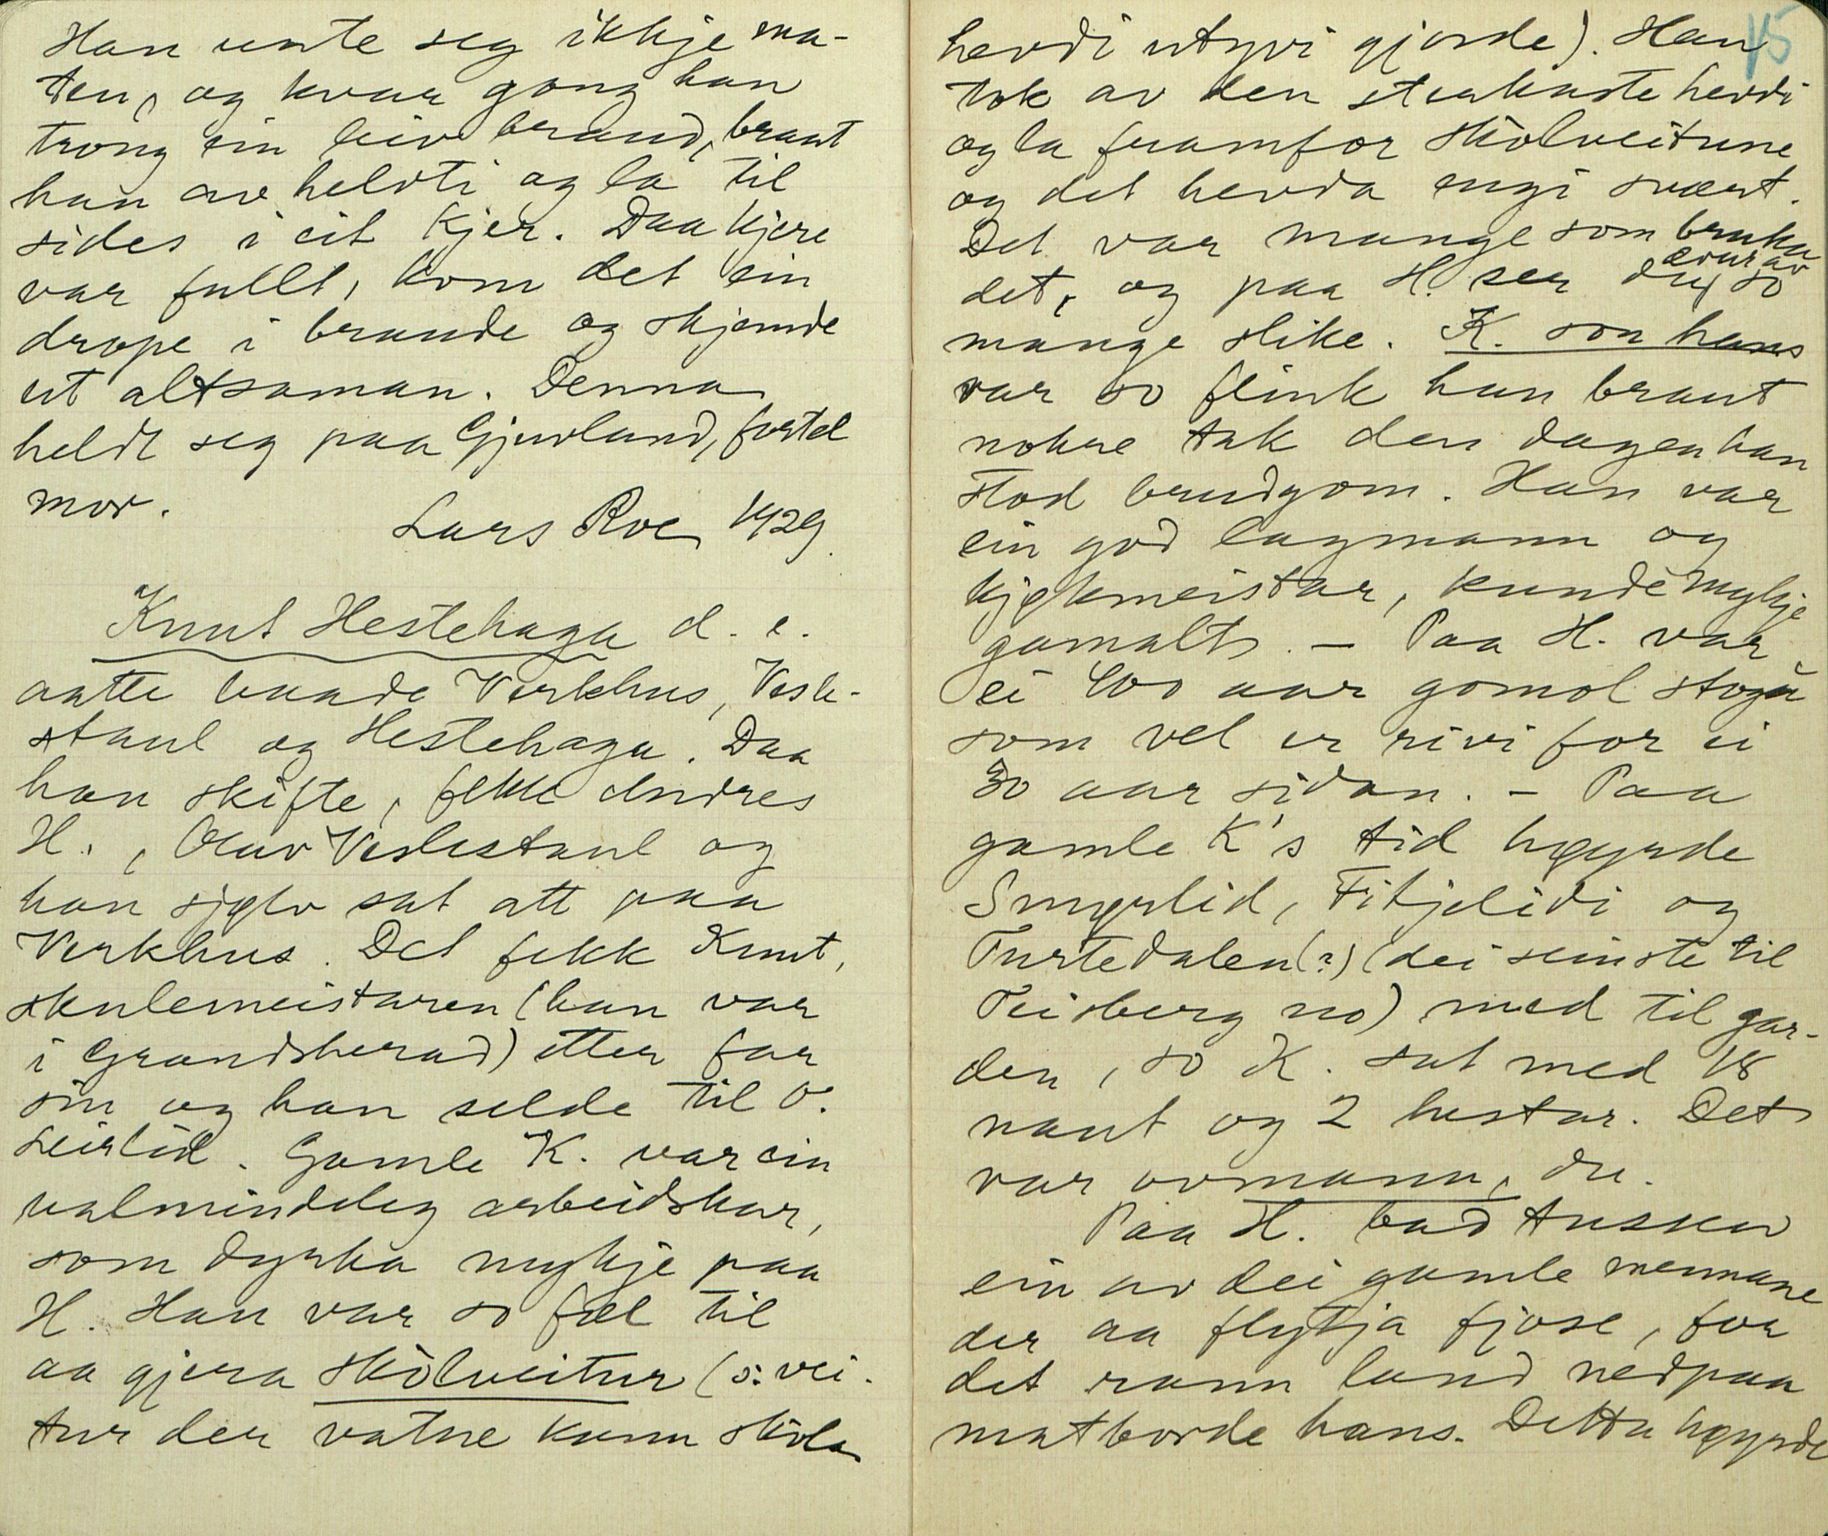 Han unte seg ikkje ma-
ten, og kvar gong han
trong ein leiv braud, braut
han av helvti og la til
sides i eit kjer. Daa kjere
var fullt, kom det ein
drope i braude og skjemde
ut altsaman. Denna
heldt seg paa Gjuvland, fortel
mor.
Lars Roe 1929.
Knut Hestehaga d. e.
aatte baade Verkhus, Vesle-
staul og Hestehaga. Daa
han skifte, fekk Andres
H., Olav Veslestaul og
han sjølv sat att paa
Verkhus. Det fekk Knut,
skulemeistaren (han var
i Grandsherad) etter far
sin og han selde til O.
Leirlid. Gamle K. var ein
ualmindeleg arbeidskar,
som dyrka mykje paa
H. Han var so fæl til
aa gjera skòlveitur (ɔ: vei-
tur der vatne kunn skòla
15
hevdi utyvi gjorde). Han
tok av den sterkaste hevdi
og la framfor skòlveitune
og det hevda engi svært.
Det var mange som bruka
det, og paa H. ser du so
ævur av
mange slike. K. son hans
var so flink han braut
nokre tak den dagen han
stod brudgom. Han var
ein god lagmann og
kjøkmeistar, kunde mykje
gamalt. – Paa H. var
ei 400 aar gomol stoga
som vel er rivi for ei
30 aar sidan. – Paa
gamle K's tid høyrde
Smørlid, Fitjelidi og
Turtedalen(?) (dei seinste til
Teisberg no) med til gar-
den, so K. sat med 18
naut og 2 hestar. Det
var ovmann, du.
Paa H. bad tussen
ein av dei gamle mennane
der aa flytja fjose, for
det rann land ned paa
matborde hans. Detta høyrde